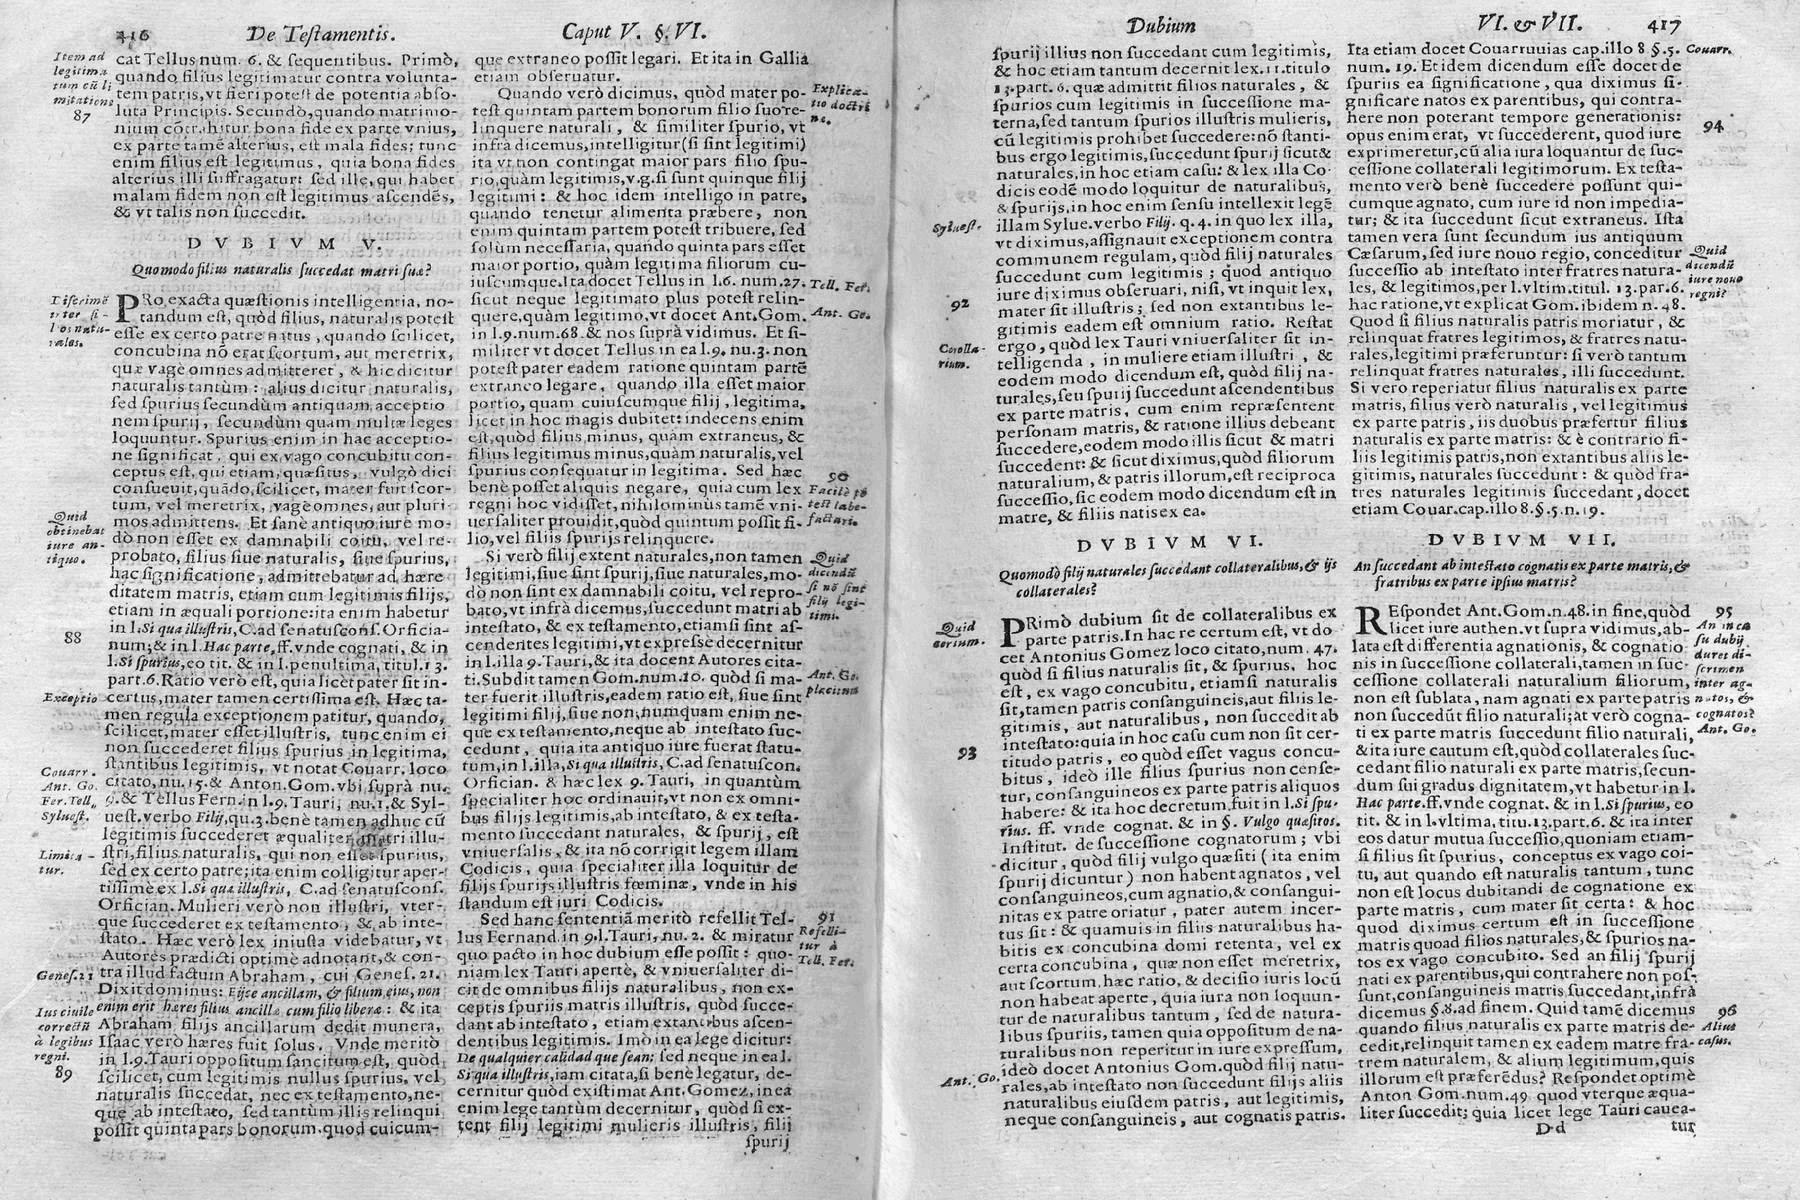 416 De Testamentis. Caput V. §. VI.
Item ad
legitima
tum cū li
mitatione
87
cat Tellus num. 6. & sequentibus. Primò,
quando filius legitimatur contra volunta-
tem patris, vt fieri potest de potentia abso-
luta Principis. Secundò, quando matrimo-
nium cōtrahitur bona fide ex parte vnius,
ex parte tamē alterius, est mala fides; tunc
enim filius est legitimus, quia bona fides
alterius illi suffragatur: sed ille, qui habet
malam fidem non est legitimus ascendēs,
& vt talis non succedit.
DVBIVM V.
Quomodo filius naturalis succedat matri suæ?
PRo exacta quæstionis intelligentia, no-
tandum est, quòd filius, naturalis potest
esse ex certo patre natus, quando scilicet,
concubina nō erat scortum, aut meretrix,
quæ vagè omnes admitteret, & hic dicitur
naturalis tantùm: alius dicitur naturalis,
sed spurius secundùm antiquam acceptio
nem spurij, secundùm quam multæ leges
loquuntur. Spurius enim in hac acceptio-
ne significat, qui ex vago concubitu con-
ceptus est, qui etiam, quæsitus, vulgò dici
consueuit, quādo, scilicet, mater fuit scor-
tum, vel meretrix, vagè omnes, aut pluri-
mos admittens. Et sanè antiquo iure mo-
dò non esset ex damnabili coitu, vel re-
probato, filius siue naturalis, siue spurius,
hac significatione, admittebatur ad hære
ditatem matris, etiam cum legitimis filijs,
etiam in æquali portione: ita enim habetur
in l. Si qua illustris, C. ad senatuscons. Orficia-
num; & in l. Hac parte, ff. vnde cognati, & in
l. Si spurius, eo tit. & in l. penultima, titul. 13.
part. 6. Ratio verò est, quia licèt pater sit in-
certus, mater tamen certissima est. Hæc ta-
men regula exceptionem patitur, quando,
scilicet, mater esset illustris, tunc enim ei
non succederet filius spurius in legitima,
stantibus legitimis, vt notat Couarr. loco
citato, nu. 15. & Anton. Gom. vbi suprà nu.
9. & Tellus Fern. in l. 9. Tauri, nu. 1. & Syl-
uest. verbo Filij, qu. 3. benè tamen adhuc cū
legitimis succederet æqualiter matri illu-
stri, filius naturalis, qui non esset spurius,
sed ex certo patre; ita enim colligitur aper-
tissimè ex l. Si qua illustris, C. ad senatuscons.
Orfician. Mulieri verò non illustri, vter-
que succederet ex testamento, & ab inte-
stato. Hæc verò lex iniusta videbatur, vt
Autores prædicti optimè adnotant, & con-
tra illud factum Abraham, cui Genes. 21.
Dixit dominus: Eijce ancillam, & filium eius, non
enim erit hæres filius ancillæ cum filio liberæ: & ita
Abraham filijs ancillarum dedit munera,
Isaac verò hæres fuit solus. Vnde meritò
in l. 9. Tauri oppositum sancitum est, quòd
scilicet, cum legitimis nullus spurius, vel
naturalis succedat, nec ex testamento, ne-
que ab intestato, sed tantùm illis relinqui
possit quinta pars bonorum. quod cuicum-
Discrimē
inter fi-
los natu-
rales.
Quid
obtinebat
iure an-
tiquo.
88
Exceptio
Couarr.
Ant. Go.
Fer. Tell.
Syluest.
Limita-
tur.
Genes. 21
Ius ciuile
correctū
à legibus
regni.
89
que extraneo possit legari. Et ita in Gallia
etiam obseruatur.
Quando verò dicimus, quòd mater po-
test quintam partem bonorum filio suo re-
linquere naturali, & similiter spurio, vt
infrà dicemus, intelligitur (si sint legitimi)
ita vt non contingat maior pars filio spu-
rio, quàm legitimis, v.g. si sunt quinque filij
legitimi: & hoc idem intelligo in patre,
quando tenetur alimenta præbere, non
enim quintam partem potest tribuere, sed
solùm necessaria, quando quinta pars esset
maior portio, quàm legitima filiorum cu-
iuscumque. Ita docet Tellus in l. 6. num. 27.
sicut neque legitimato plus potest relin-
quere, quàm legitimo, vt docet Ant. Gom.
in l. 9. num. 68. & nos suprà vidimus. Et si-
militer vt docet Tellus in ea l. 9. nu. 3. non
potest pater eadem ratione quintam partē
extraneo legare, quando illa esset maior
portio, quam cuiuscumque filij, legitima,
licet in hoc magis dubitet: indecens enim
est, quòd filius minus, quàm extraneus, &
filius legitimus minus, quàm naturalis, vel
spurius consequatur in legitima. Sed hæc
benè posset aliquis negare, quia cum lex
regni hoc vidisset, nihilominus tamē vni-
uersaliter prouidit, quòd quintum possit fi-
lio, vel filiis spurijs relinquere.
Si verò filij extent naturales, non tamen
legitimi, siue sint spurij, siue naturales, mo-
dò non sint ex damnabili coitu, vel repro-
bato, vt infrà dicemus, succedunt matri ab
intestato, & ex testamento, etiam si sint as-
cendentes legitimi, vt expresse decernitur
in l. illa 9. Tauri, & ita docent Autores cita-
ti. Subdit tamen Gom. num. 10. quòd si ma-
ter fuerit illustris, eadem ratio est, siue sint
legitimi filij, siue non, numquam enim ne-
que ex testamento, neque ab intestato suc-
cedunt, quia ita antiquo iure fuerat statu-
tum, in l. illa, Si qua illustris, C. ad senatuscon.
Orfician. & hæc lex 9. Tauri, in quantùm
specialiter hoc ordinauit, vt non ex omni-
bus filijs legitimis, ab intestato, & ex testa-
mento succedant naturales, & spurij, est
vniuersalis, & ita nō corrigit legem illam
Codicis, quia specialiter illa loquitur de
filijs spurijs illustris fœminæ, vnde in his
standum est iuri Codicis.
Sed hanc sententiā meritò refellit Tel-
lus Fernand. in 9. l. Tauri, nu. 2. & miratur
quo pacto in hoc dubium esse possit: quo-
niam lex Tauri apertè, & vniuersaliter di-
cit de omnibus filijs naturalibus, non ex-
ceptis spurijs matris illustris, quòd succe-
dant ab intestato, etiam extantibus ascen-
dentibus legitimis. Imò in ea lege dicitur:
De qualquier calidad que sean: sed neque in ea l.
Si qua illustris, iam citata, si benè legatur, de-
cernitur quòd existimat Ant. Gomez, in ea
enim lege tantùm decernitur, quòd si ex-
tent filij legitimi mulieris illustris, filij
spurij
Explica-
tio doctri
næ.
Tell. Fer.
Ant. Go.
90
Facilè po
test labe-
factari.
Quid
dicendū
si nō sint
filij legi-
timi.
Ant. Go.
placitum
91
Refelli-
tur à
Tell. Fer.
Dubium VI. & VII. 417
spurij illius non succedant cum legitimis,
& hoc etiam tantum decernit lex. 11. titulo
13. part. 6. quæ admittit filios naturales, &
spurios cum legitimis in successione ma-
terna, sed tantum spurios illustris mulieris,
cū legitimis prohibet succedere: nō stanti-
bus ergo legitimis, succedunt spurij sicut &
naturales, in hoc etiam casu: & lex illa Co-
dicis eodē modo loquitur de naturalibus,
& spurijs, in hoc enim sensu intellexit legē
illam Sylue. verbo Filij. q. 4. in quo lex illa,
vt diximus, assignauit exceptionem contra
communem regulam, quòd filij naturales
succedunt cum legitimis; quod antiquo
iure diximus obseruari, nisi, vt inquit lex,
mater sit illustris; sed non extantibus le-
gitimis eadem est omnium ratio. Restat
ergo, quòd lex Tauri vniuersaliter sit in-
telligenda, in muliere etiam illustri, &
eodem modo dicendum est, quòd filij na-
turales, seu spurij succedunt ascendentibus
ex parte matris, cum enim repræsentent
personam matris, & ratione illius debeant
succedere, eodem modo illis sicut & matri
succedent: & sicut diximus, quòd filiorum
naturalium, & patris illorum, est reciproca
successio, sic eodem modo dicendum est in
matre, & filiis natis ex ea.
DVBIVM VI.
Quomodò filij naturales succedant collateralibus, & ijs
collaterales?
PRimò dubium sit de collateralibus ex
parte patris. In hac re certum est, vt do
cet Antonius Gomez loco citato, num. 47.
quòd si filius naturalis sit, & spurius, hoc
est, ex vago concubitu, etiamsi naturalis
sit, tamen patris consanguineis, aut filiis le-
gitimis, aut naturalibus, non succedit ab
intestato: quia in hoc casu cum non sit cer-
titudo patris, eo quòd esset vagus concu-
bitus, ideò ille filius spurius non conse-
tur, consanguineos ex parte patris aliquos
habere: & ita hoc decretum fuit in l. Si spu-
rius. ff. vnde cognat. & in §. Vulgo quæsitos.
Institut. de successione cognatorum; vbi
dicitur, quòd filij vulgo quæsiti (ita enim
spurij dicuntur) non habent agnatos, vel
consanguineos, cum agnatio, & consangui-
nitas ex patre oriatur, pater autem incer-
tus sit: & quamuis in filiis naturalibus ha-
bitis ex concubina domi retenta, vel ex
certa concubina, quæ non esset meretrix,
aut scortum, hæc ratio, & decisio iuris locū
non habeat aperte, quia iura non loquun-
tur de naturalibus tantum, sed de natura-
libus spuriis, tamen quia oppositum de na-
turalibus non reperitur in iure expressum,
ideò docet Antonius Gom. quòd filij natu-
rales, ab intestato non succedunt filijs aliis
naturalibus eiusdem patris, aut legitimis,
neque consanguineis, aut cognatis patris.
Syluest.
92
Corolla-
rium.
Quid
certum.
93
Ant. Go.
Ita etiam docet Couarruuias cap. illo 8. §. 5.
num. 19. Et idem dicendum esse docet de
spuriis ea significatione, qua diximus si-
gnificare natos ex parentibus, qui contra-
here non poterant tempore generationis:
opus enim erat, vt succederent, quod iure
exprimeretur, cū alia iura loquantur de suc-
cessione collaterali legitimorum. Ex testa-
mento verò benè succedere possunt qui-
cumque agnato, cum iure id non impedia-
tur; & ita succedunt sicut extraneus. Ista
tamen vera sunt secundum ius antiquum
Cæsarum, sed iure nouo regio, conceditur
successio ab intestato inter fratres natura-
les, & legitimos, per l. vltim. titul. 13. par. 6.
hac ratione, vt explicat Gom. ibidem n. 48.
Quòd si filius naturalis patris moriatur, &
relinquat fratres legitimos, & fratres natu-
rales, legitimi præferuntur: si verò tantum
relinquat fratres naturales, illi succedunt.
Si vero reperiatur filius naturalis ex parte
matris, filius verò naturalis, vel legitimus
ex parte patris, iis duobus præfertur filius
naturalis ex parte matris: & è contrario fi-
liis legitimis patris, non extantibus aliis le-
gitimis, naturales succedunt: & quòd fra-
tres naturales legitimis succedant, docet
etiam Couar. cap. illo 8. §. 5. n. 19.
DVBIVM VII.
An succedant ab intestato cognatis ex parte matris, &
fratribus ex parte ipsius matris?
REspondet Ant. Gom. n. 48. in fine, quòd
licet iure authen. vt supra vidimus, ab-
lata est differentia agnationis, & cognatio
nis in successione collaterali, tamen in suc-
cessione collaterali naturalium filiorum,
non est sublata, nam agnati ex parte patris
non succedūt filio naturali; at verò cogna-
ti ex parte matris succedunt filio naturali,
& ita iure cautum est, quòd collaterales suc-
cedant filio naturali ex parte matris, secun-
dum sui gradus dignitatem, vt habetur in l.
Hac parte. ff. vnde cognat. & in l. Si spurius, eo
tit. & in l. vltima, titu. 13. part. 6. & ita inter
eos datur mutua successio, quoniam etiam-
si filius sit spurius, conceptus ex vago coi-
tu, aut quando est naturalis tantum, tunc
non est locus dubitandi de cognatione ex
parte matris, cum mater sit certa: & hoc
quod diximus certum est in successione
matris quoad filios naturales, & spurios na-
tos ex vago concubito. Sed an filij spurij
nati ex parentibus, qui contrahere non pos-
sunt, consanguineis matris succedant, infrà
dicemus §. 8. ad finem. Quid tamē dicemus
quando filius naturalis ex parte matris de-
cedit, relinquit tamen ex eadem matre fra-
trem naturalem, & alium legitimum, quis
illorum est præferēdus? Respondet optimè
Anton Gom. num. 49 quod vterque æqua-
liter succedit; quia licet lege Tauri cauea-
Dd tur
Couarr.
94
Quid
dicendū
iure nouo
regni?
95
An in ea
su dubij
duret di-
scrimen
inter ag-
natos, &
cognatos?
Ant. Go.
96
Alius
casus.